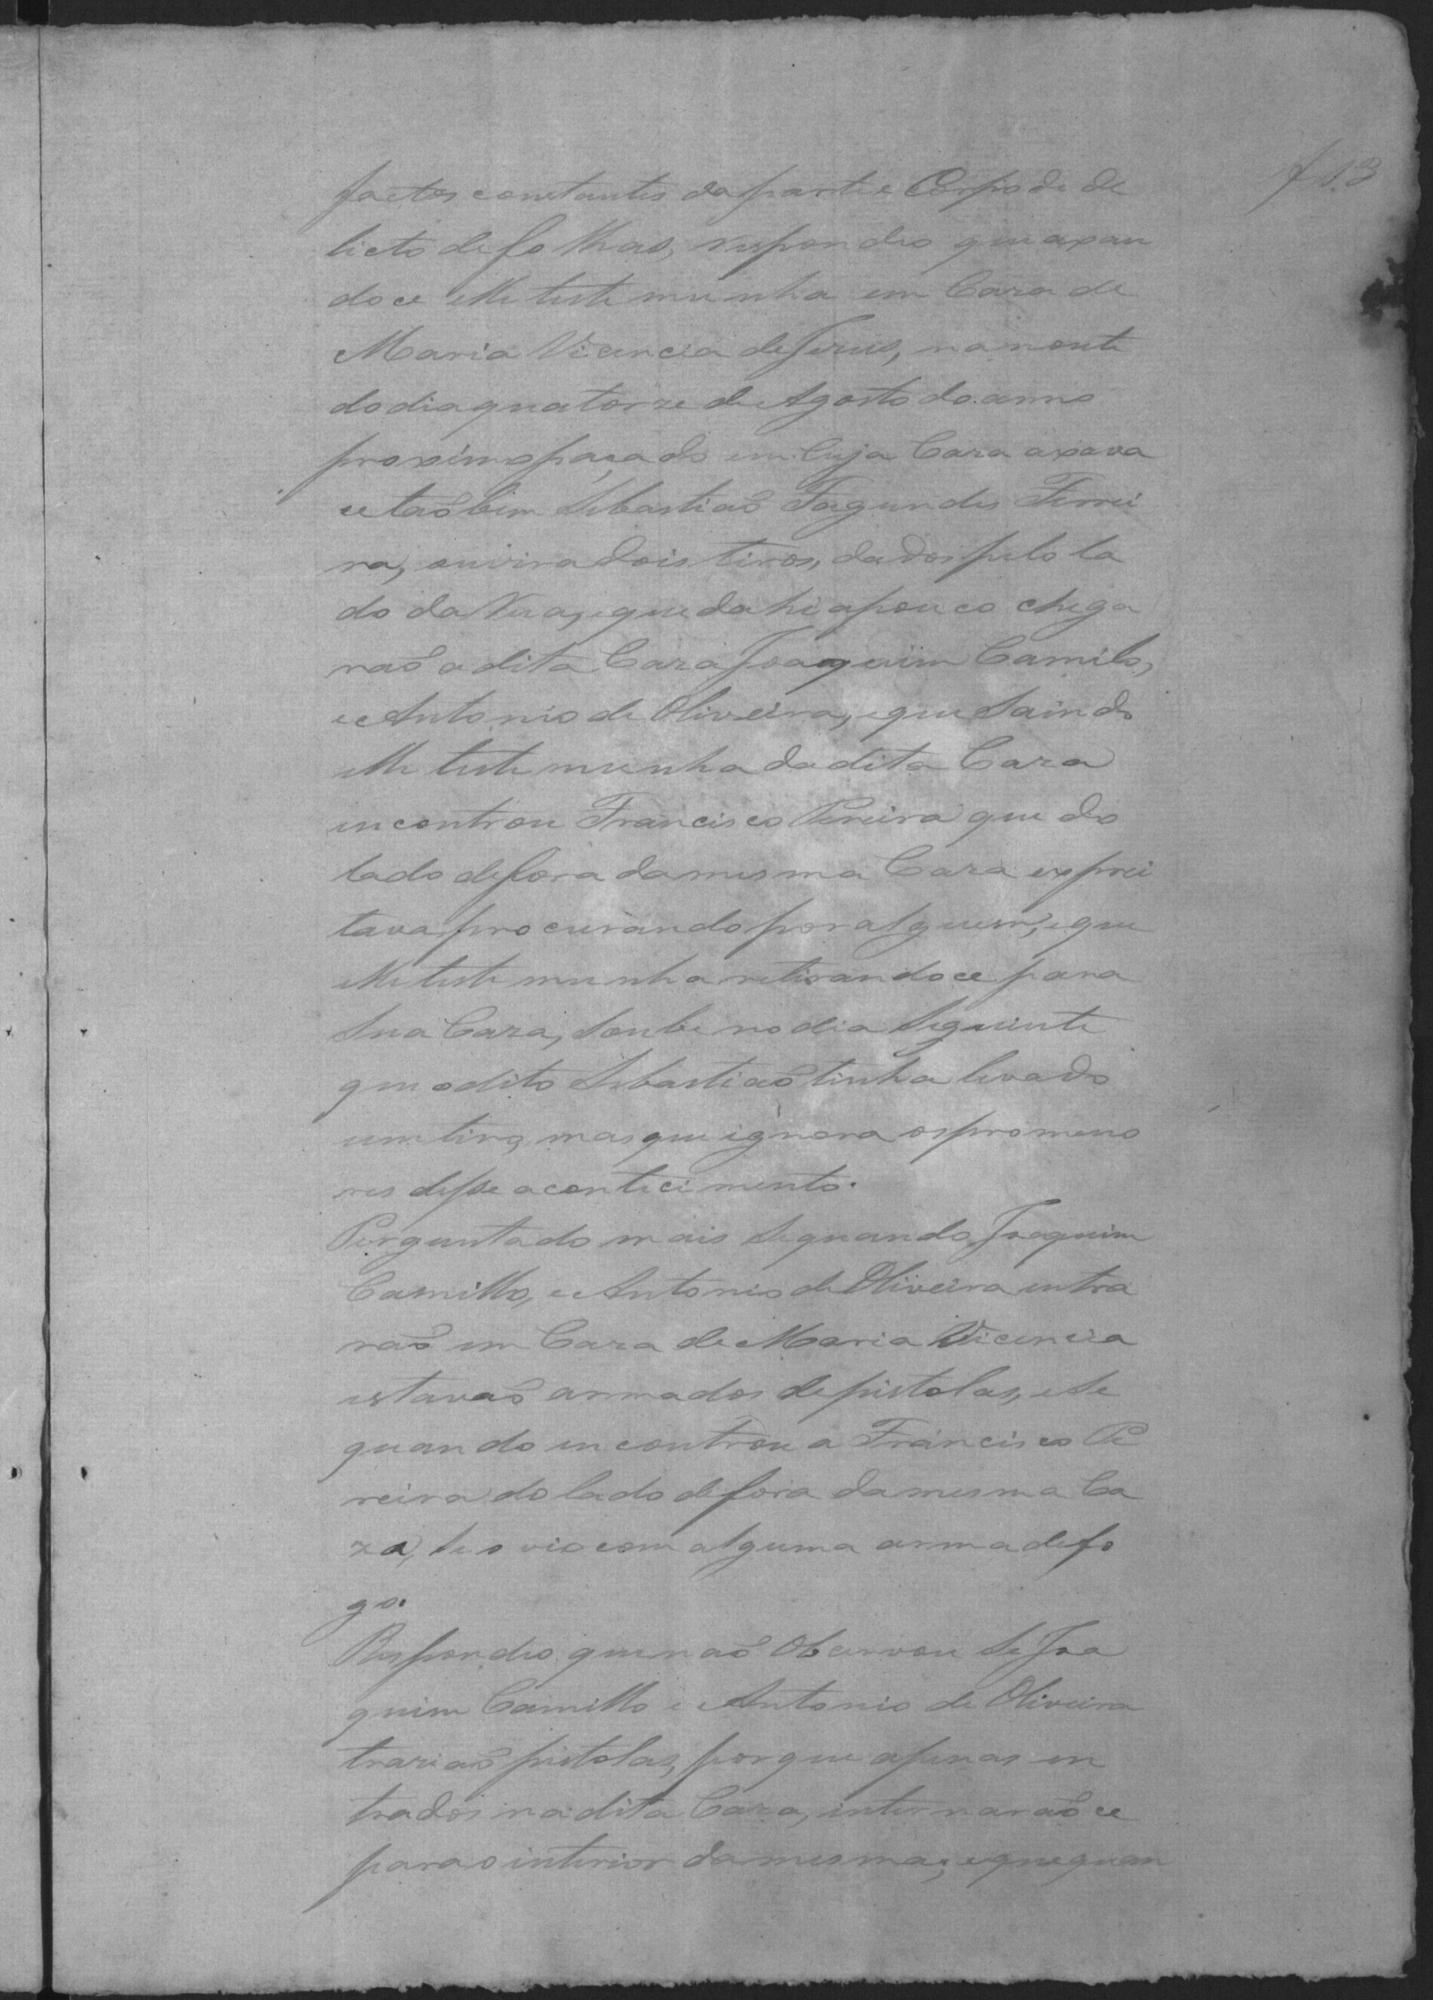 f 13
factos constantes da parte e Corpo de de
licto de folhas, respondeo que axan
doce elle testemunha em Caza de
Maria Vicencia de Jezus, na noute
do dia quatorze de Agosto do anno
proximo paçado em Cuja Caza axava
ce taõ bem Sebastiaõ Fagundes Ferrei
ra, ouvira dois tiros, dados pelo la
do da Rua, e que dahi apouco chega
raõ a dita Caza Joaquim Camilo,
e Antonio de Oliveira, e que Saindo
elle testemunha da dita Caza
incontrou Francisco Pereira que do
lado de fora da mesma Caza exprei
tava, procurando por alguem, e que
elle testemunha retirandoce para
Sua Caza, Soube no dia Seguinte
que o dito Sebastiaõ tinha levado
um tiro, mas que ignora os promeno
res desse acontecimento.
Perguntado mais Se quando Joaquim
Camillo, e Antonio de Oliveira entra
raõ em Caza de Maria Vicencia
estavaõ armados de pistolas, e Se
quando incontrou a Francisco Pe
reira do lado de fora da mesma Ca
za, Se o vio com alguma arma de fo
go.
Respondeo que naõ Obcervou Se Joa
quim Camillo e Antonio de Oliveira
traziaõ pistolas, porque apenas en
trados na dita Caza, internaraõ ce
para o interior da mesma, e que quan